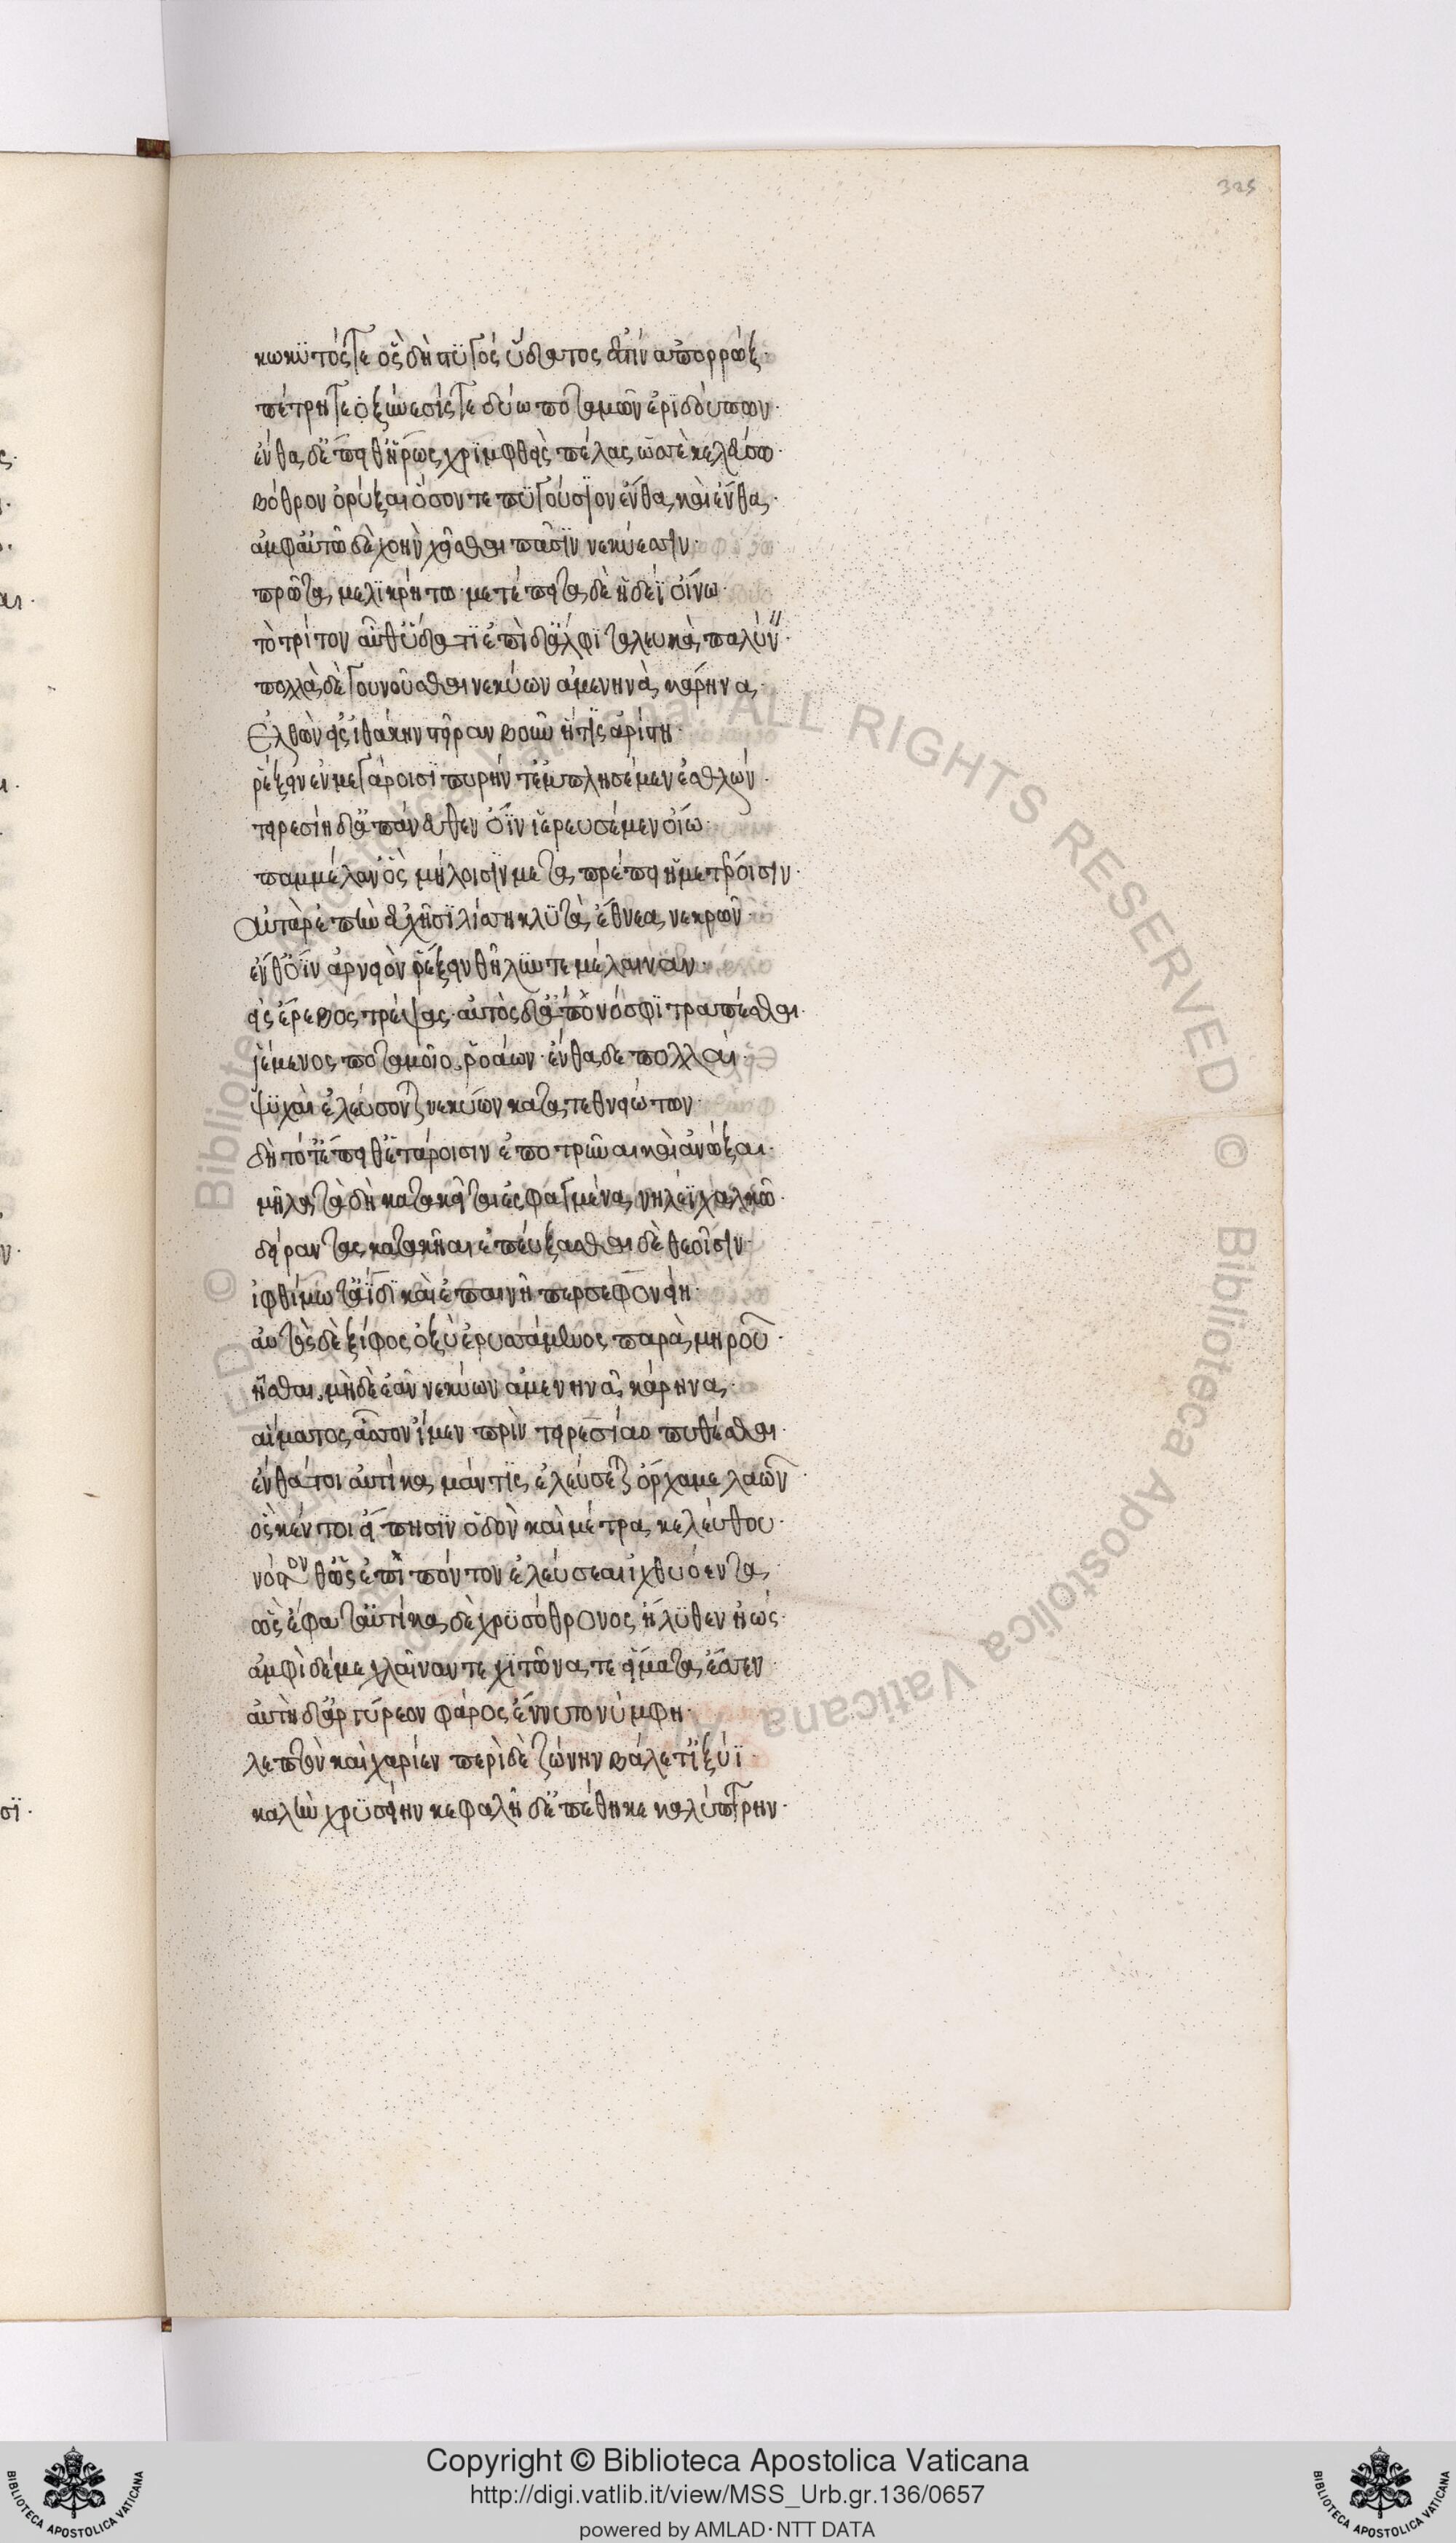 325
κωκυτός τε ὃς δὴ στυγὸς ὕδατος ἐστὶν ἀπορρώξ·
πέτρη τε ξύνεσίς τε δύω ποταμῶν ἐριδούπων·
ἔνθα δ' ἔπειθ' ἥρως χριμφθεὶς πέλας ὥς σε κελεύω·
βόθρον ὀρύξαι ὅσον τε πυγούσιον ἔνθα καὶ ἔνθα·
ἀμφ' αὐτῶ δὲ χοὴν χεῖσθαι πᾶσιν νεκύεσσιν·
πρῶτα μελικρήτω· μετέπειτα δὲ ἡδέϊ οἴνω·
τὸ τρίτον αὖθ' ὕδατι ἐπὶ δ' ἄλφιτα λευκὰ παλύν·
πολλὰ δὲ γουνοῦσθαι νεκύων ἀμενηνὰ κάρηνα·
Ἐλθὼν εἰς ἰθάκην στεῖραν βοῦν ἥτις ἀρίστη·
ῥέξειν ἐν μεγάροισι πυρήν τ' ἐμπλησέμεν ἐσθλῶν·
τειρεσίη δ' ἀπάνευθεν ὄϊν ἱερευσέμεν οἴω·
παμμέλαν' ὃς μήλοισιν μεταπρέπει ἡμετέροισιν·
αὐτὰρ ἐπὴν εὐχῆσι λίση κλυτὰ ἔθνεα νεκρῶν·
ἔνθ' ὄϊν ἀρνειὸν ῥέξειν θῆλύν τε μέλαιναν·
εἰς ἔρεβος τρέψας· αὐτὸς δ' ἀπονόσφι τραπέσθαι·
ἱέμενος ποταμοῖο ῥοάων· ἔνθα δὲ πολλαὶ·
ψυχαὶ ἐλεύσονται νεκύων κατατεθνειώτων·
δὴ τότ' ἔπειθ' ἑτάροισιν ἐποτρῦναι καὶ ἀνῶξαι·
μῆλα τὰ δὴ κατάκειται ἐσφαγμένα νηλέϊ χαλκῶ·
δείραντας κατακῆαι ἐπεύξασθαι δὲ θεοῖσιν·
ἰφθίμω τ' ἀΐδι καὶ ἐπαινῆ περσεφονείη·
αὐτὸς δὲ ξίφος ὀξὺ ἐρυσσάμενος παρὰ μηροῦ·
ἧσθαι, μὴ δὲ ἐᾶν νεκύων ἀμενηνὰ κάρηνα·
αἵματος ἆσσον ἴμεν πρὶν τειρεσίαο πυθέσθαι·
ἔνθα τοι αὐτίκα μάντις ἐλεύσεται ὄρχαμε λαῶν·
ὅς κέν τοι εἴπησιν ὁδὸν καὶ μέτρα κελεύθου·
νόστον θ' ὡς ἐπὶ πόντον ἐλεύσεαι ἰχθυόεντα·
ὣς ἔφατ' αὐτίκα δὲ χρυσόθρονος ἤλυθεν ἠώς·
ἀμφὶ δέ με χλαῖναν τε χιτῶνα τε εἵματα ἕσσεν·
αὐτὴ δ' ἀργύρεον φάρος ἕννυτο νύμφη·
λεπτὸν καὶ χαρίεν περὶ δὲ ζώνην βάλετ' ἰξύϊ·
καλὴν χρυσείην κεφαλῆ δ' ἐπέθηκε καλύπτρην·
Copyright © Biblioteca Apostolica Vaticana
http://digi.vatlib.it/view/MSS_Urb.gr.136/0657
powered by AMLAD·NTT DATA